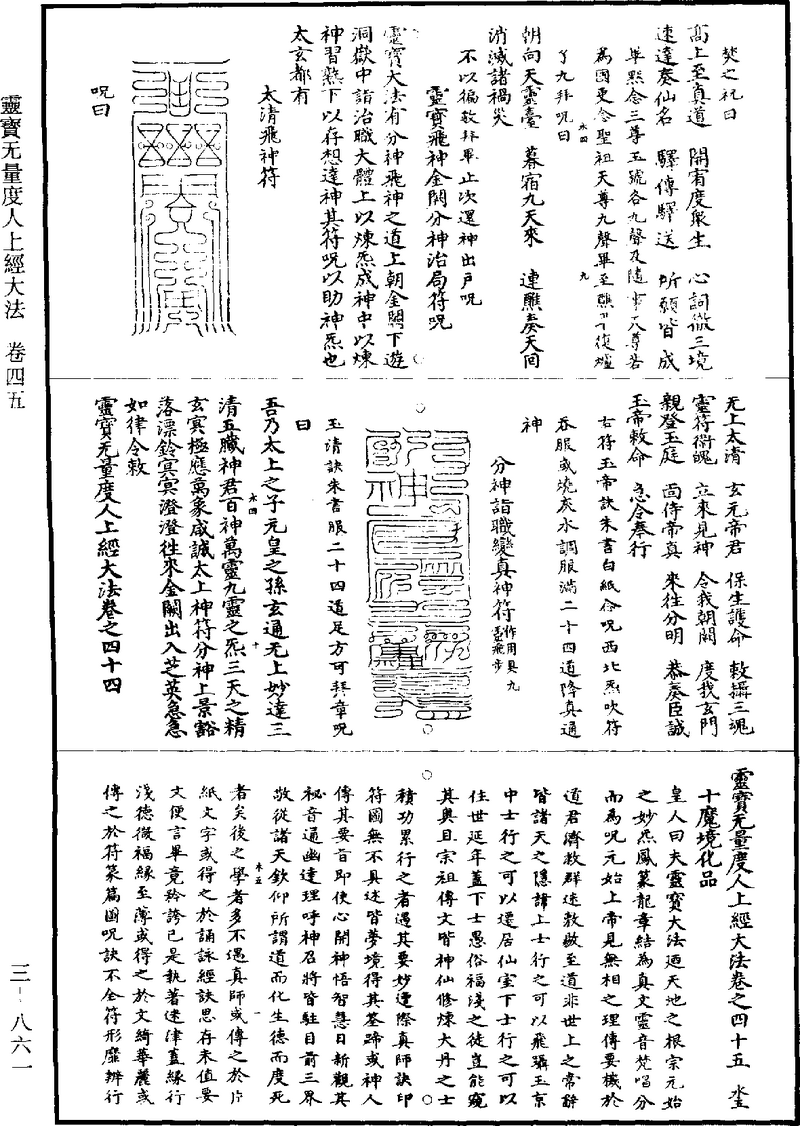 靈寶无量度人上經大法　卷四五
三-八六一
焚之祝曰
高上至真道　開宥度衆生　心詞徹三境
速達奏仙名　驛傳驛送　所願皆成
畢默念三尊玉號各九聲及隨事天尊各
爲國更念聖祖天尊九聲畢至醮
了九拜呪曰
朝向天靈臺　暮宿九天來　連醮奏天回
消滅諸禍災
不以徧敬拜畢止次還神出戶呪
靈寶飛神金闕分神治局符呪
靈寶大法有分神飛神之道上朝金闕下遊
洞嶽中詣治職大體上以煉炁成神中以煉
神習熟下以存想達神其符呪以助神炁也
太玄都有
太清飛神符
呪曰
无上太清　玄元帝君　保生護命　敕攝三魂
靈符衛魄　立來見神　令我朝闕　度我玄門
親登玉庭　面侍帝真　來往分明　恭奏臣誠
玉帝敕命　急令奉行
右符玉帝訣朱書白紙念呪西北炁吹符
吞服或燒灰水調服滿二十四道降真通
神
分神詣職變真神符
玉清訣朱書服二十四道足方可拜章呪
曰
吾乃太上之子元皇之孫玄通无上妙達三
清五臟神君百神萬靈九靈之炁三天之精
玄冥極應萬象咸誠太上神符分神上景豁
落漂鈴冥冥澄澄往來金闕出入芝英急急
如律令敕
靈寶无量度人上經大法卷之四十四
靈寶无量度人上經大法卷之四十五
十魔境化品
皇人曰夫靈寶大法迺天地之根宗元始
之妙炁鳳篆龍章結爲真文靈音梵唱分
而爲呪元始上帝見無相之理傳要機於
道君濟救群迷敷敝至道非世上之常辭
皆諸天之隱諱上士行之可以飛躡玉京
中士行之可以還居仙室下士行之可以
住世延年蓋下士愚俗福淺之徒豈能窺
其奧且宗祖傳文皆神仙修煉大丹之士
積功累行之者遇其要妙運際真師訣印
符圖無不具述皆夢境得其筌蹄或神人
傳其要旨即使心開神悟智慧日新觀其
祕音通幽達理呼神召將皆駐目前三界
敬從諸天欽仰所謂道而化生德而度死
者矣後之學者多不遇真師或傳之於片
紙文字或得之於誦詠經訣思存未值要
文便言畢竟矜誇已是執著迷津直緣行
淺德微福緣至薄或得之於文綺華麗或
傳之於符篆篇圖呪訣不全符形靡辨行